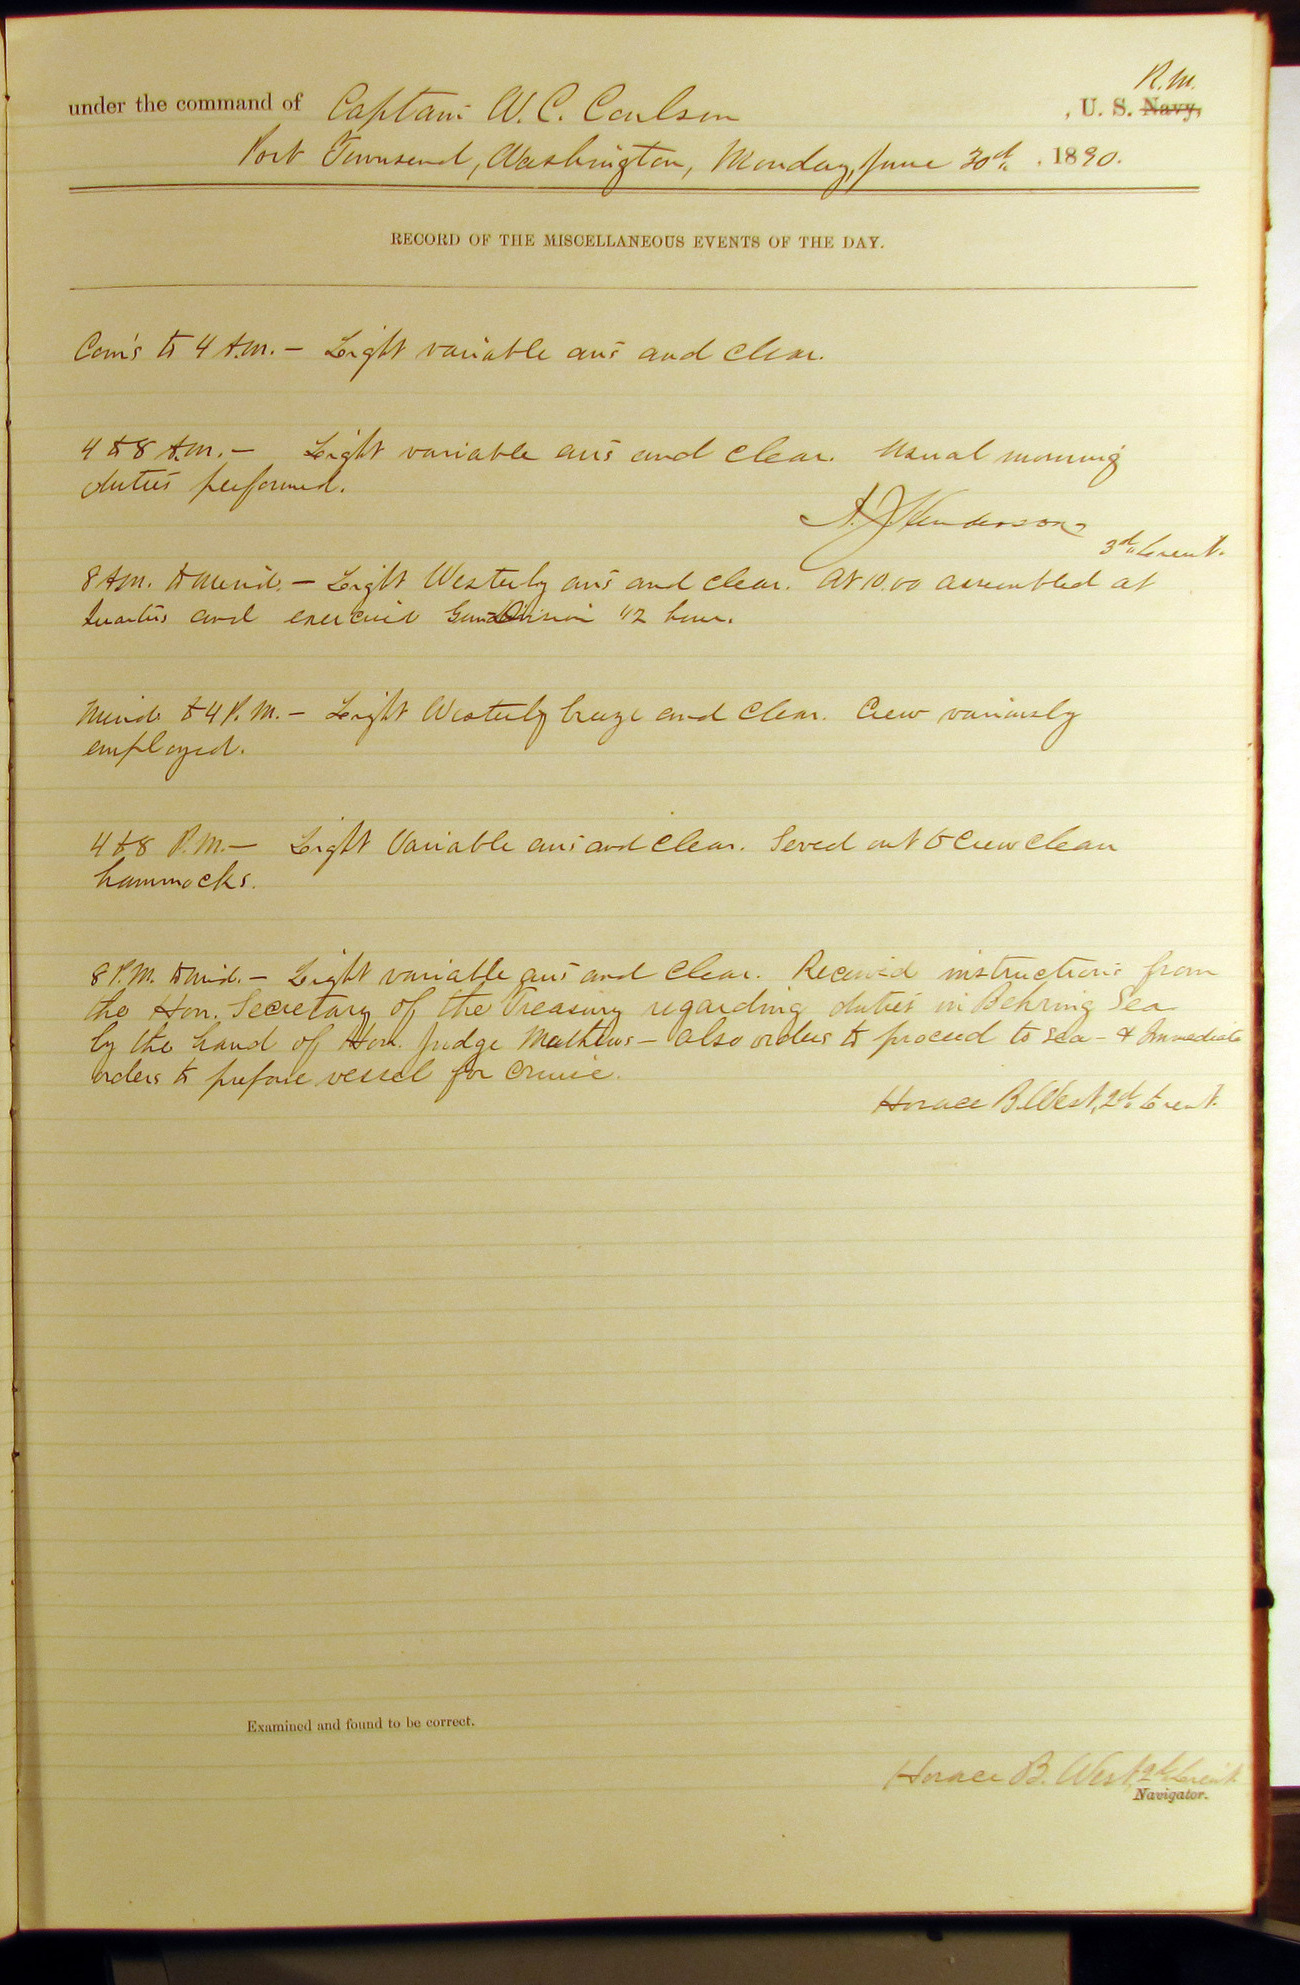 R.M.
under the command of Captain W. C. Coulson , U. S. Navy,
Port Townsend, Washington, Monday, June 30th , 1890.
RECORD OF THE MISCELLANEOUS EVENTS OF THE DAY.
Com's to 4 A.M. — Light variable airs and clear.
4 to 8 A.M. — Light variable airs and clear. Usual morning
duties performed.
A. J. Henderson
3d Lieut.
8 A.M. to Merid. — Light Westerly airs and clear. At 10.00 assembled at
quarters and exercised Gun Division 1/2 hour.
Merid. to 4 P.M. — Light Westerly breeze and clear. Crew variously
employed.
4 to 8 P.M. — Light Variable airs and clear. Served out to Crew clean
hammocks.
8 P.M. to mid. — Light variable airs and clear. Received instructions from
the Hon. Secretary of the Treasury regarding duties in Behring Sea
by the hand of Hon. Judge Mathews — also orders to proceed to sea — & Immediate
orders to prepare vessel for cruise.
Horace B. West, 2d Lieut.
Examined and found to be correct.
Horace B. West, 2d Lieut.
Navigator.